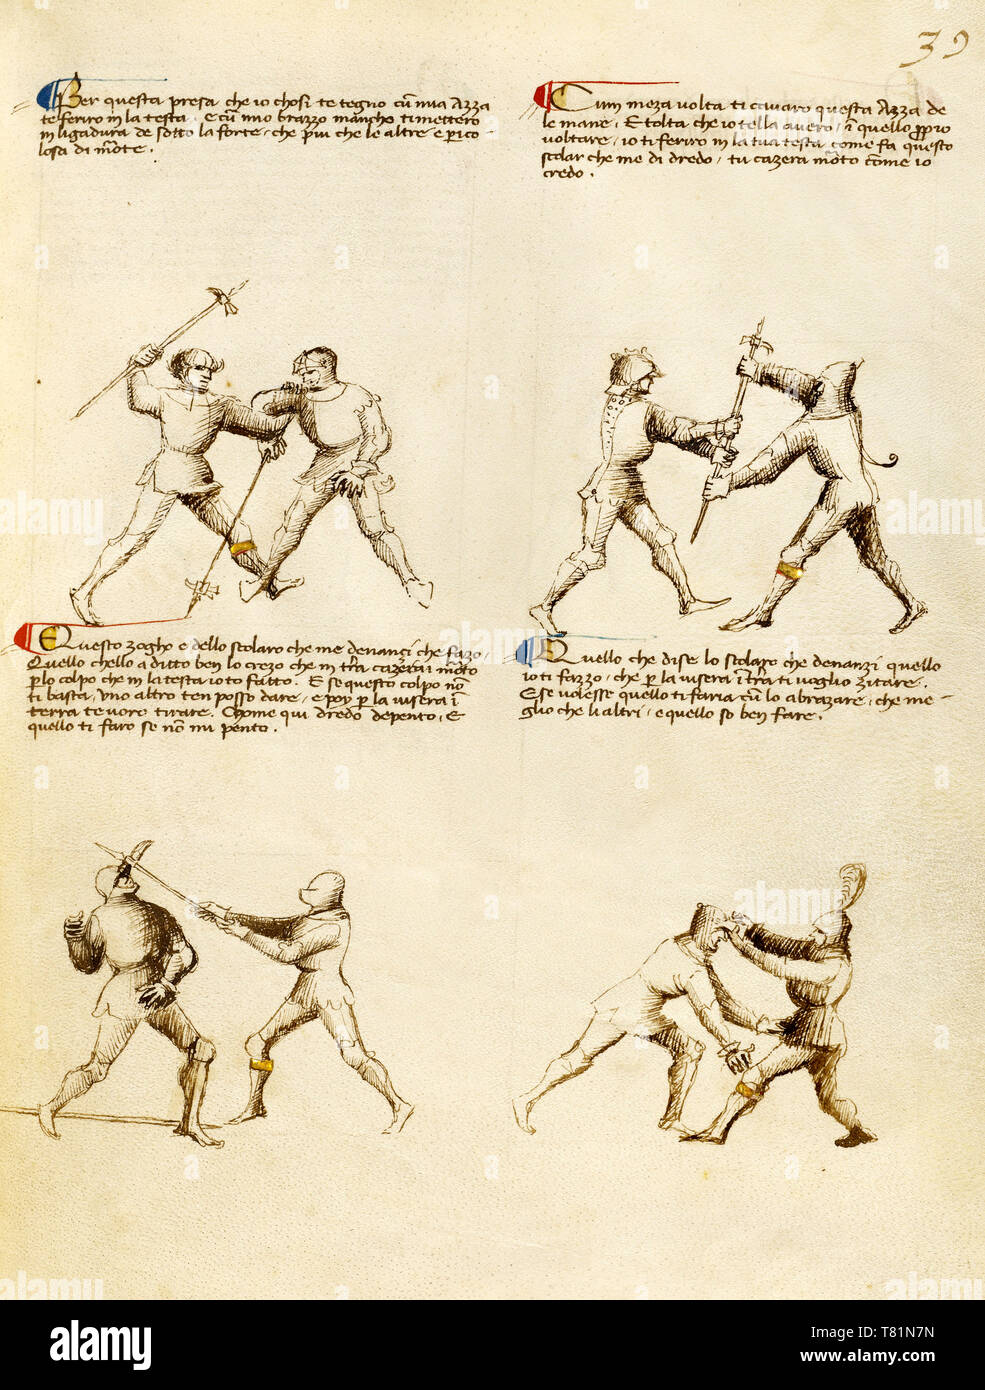 39
Per questa presa che io chosi te tegno cu mia Azza
te feriro in la testa . e cu mio brazzo mancho ti mettero
in ligadura de sotto la forte / che piu che le altre e perico-
losa di morte .
Cum meza volta ti cavaro questa Azza de
le mane / E tolta che io tella avero / in quello proprio
voltare / io ti feriro in la tua testa come fa questo
scolar che me di dredo / tu cazera morto come io
credo .
Questo zogho e dello scolaro che me denançi che fazo /
Quello chello a ditto ben lo crezo che in terra cazerai morto
per lo colpo che in la testa io to fatto . E se questo colpo non
ti basta / uno altro ten posso dare / e poy per la visera in
terra te voro tirare . Chome qui dredo depento / E
quello ti faro se non mi pento .
Quello che dise lo scolaro che denanzi quello
io ti fazzo / che per la visera in terra ti voglio zitare .
E se volesse quello ti faria cum lo abrazare / che me-
glio che li altri / e quello so ben fare .
alamy
Image ID: T81N7N
www.alamy.com